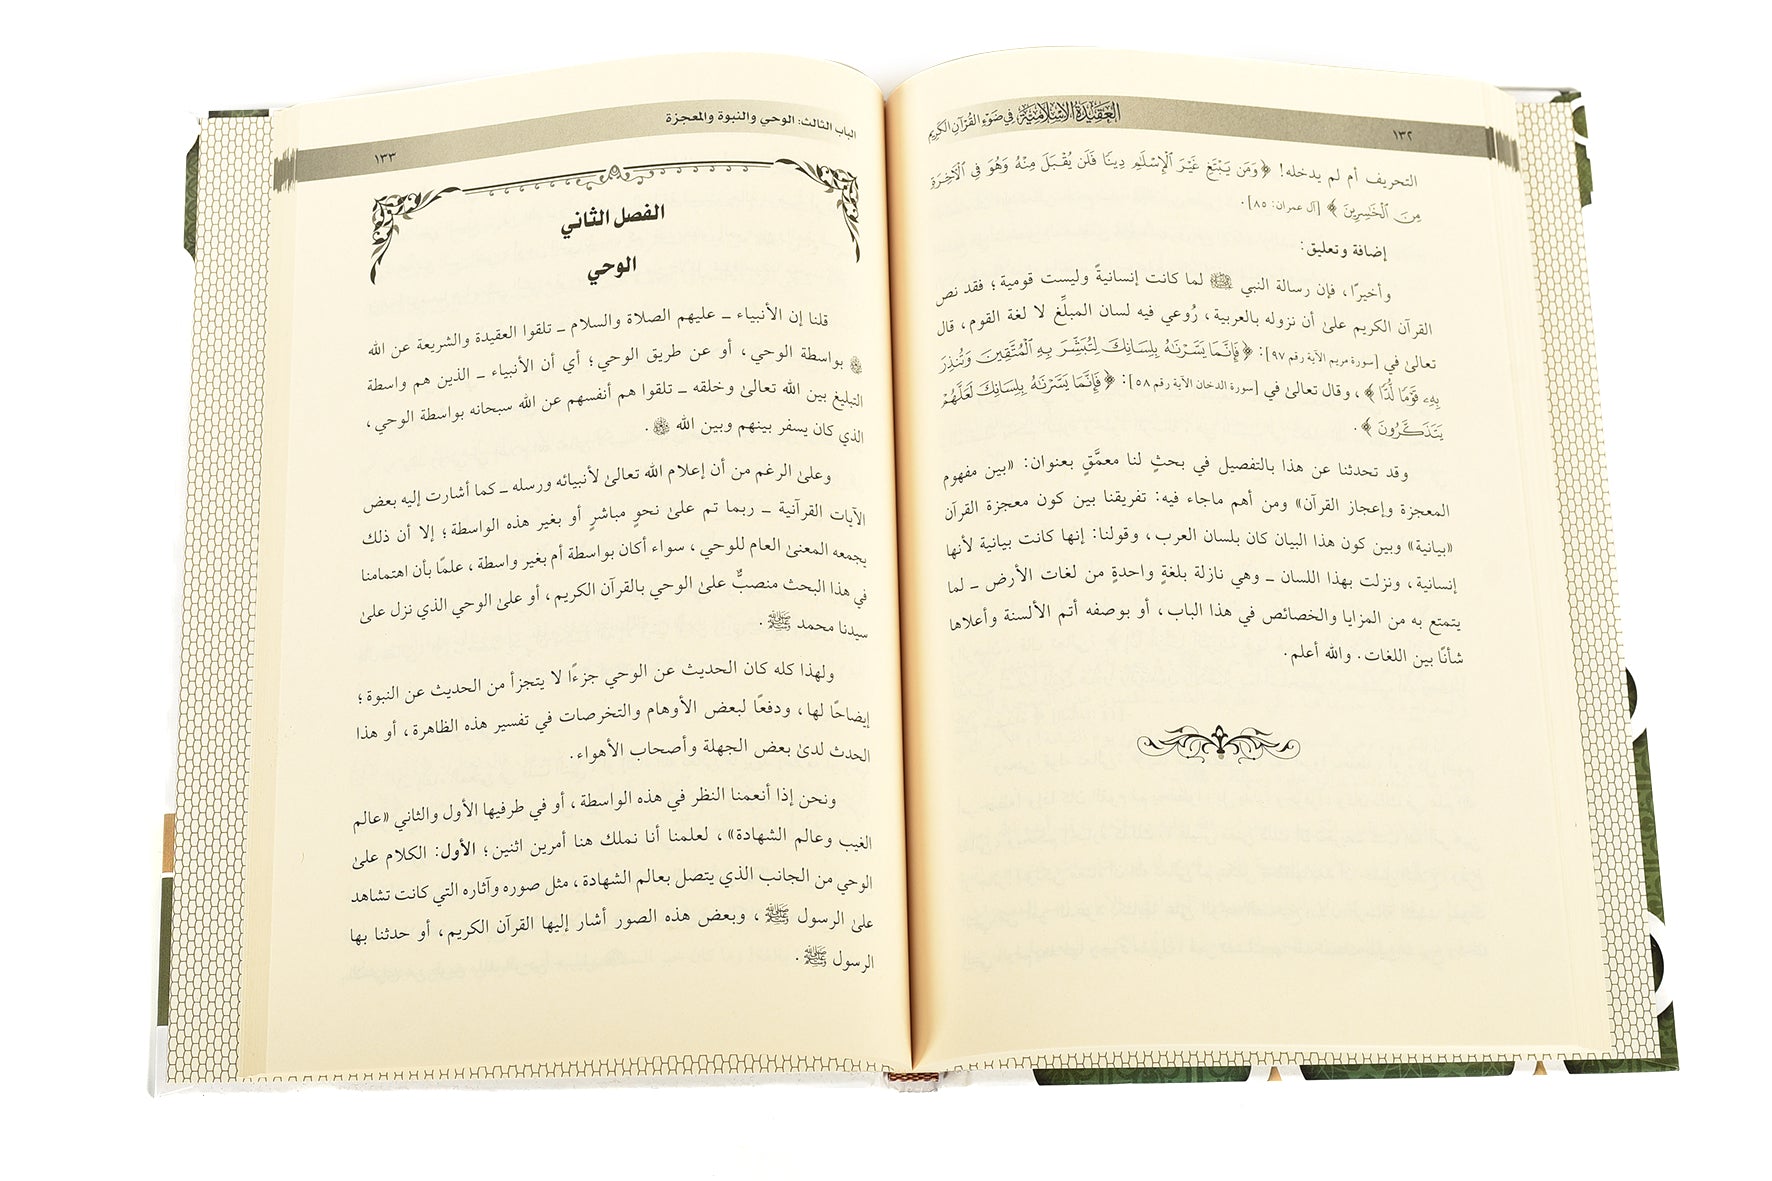 ١٣٢
العقيدة الإسلامية في ضوء القرآن الكريم
التحريف أم لم يدخله! ﴿وَمَن يَبْتَغِ غَيْرَ ٱلْإِسْلَٰمِ دِينًا فَلَن يُقْبَلَ مِنْهُ وَهُوَ فِي ٱلْآخِرَةِ
مِنَ ٱلْخَٰسِرِينَ﴾ [آل عمران: ٨٥].
إضافة وتعليق:
وأخيرًا، فإن رسالة النبي ﷺ لما كانت إنسانيةً وليست قومية؛ فقد نص
القرآن الكريم علىٰ أن نزوله بالعربية، رُوعي فيه لسان المبلِّغ لا لغة القوم، قال
تعالىٰ في [سورة مريم الآية رقم ٩٧]: ﴿فَإِنَّمَا يَسَّرْنَٰهُ بِلِسَانِكَ لِتُبَشِّرَ بِهِ ٱلْمُتَّقِينَ وَتُنذِرَ
بِهِۦ قَوْمًا لُّدًّا﴾، وقال تعالىٰ في [سورة الدخان الآية رقم ٥٨]: ﴿فَإِنَّمَا يَسَّرْنَٰهُ بِلِسَانِكَ لَعَلَّهُمْ
يَتَذَكَّرُونَ﴾.
وقد تحدثنا عن هذا بالتفصيل في بحثٍ لنا معمَّقٍ بعنوان: «بين مفهوم
المعجزة وإعجاز القرآن» ومن أهم ماجاء فيه: تفريقنا بين كون معجزة القرآن
«بيانية» وبين كون هذا البيان كان بلسان العرب، وقولنا: إنها كانت بيانية لأنها
إنسانية، ونزلت بهذا اللسان ـ وهي نازلة بلغةٍ واحدةٍ من لغات الأرض ـ لما
يتمتع به من المزايا والخصائص في هذا الباب، أو بوصفه أتم الألسنة وأعلاها
شأنًا بين اللغات. والله أعلم.
الباب الثالث: الوحي والنبوة والمعجزة
١٣٣
الفصل الثاني
الوحي
قلنا إن الأنبياء ـ عليهم الصلاة والسلام ـ تلقوا العقيدة والشريعة عن الله
بواسطة الوحي، أو عن طريق الوحي؛ أي أن الأنبياء ـ الذين هم واسطة
التبليغ بين الله تعالىٰ وخلقه ـ تلقوا هم أنفسهم عن الله سبحانه بواسطة الوحي،
الذي كان يسفر بينهم وبين الله.
وعلىٰ الرغم من أن إعلام الله تعالىٰ لأنبيائه ورسله ـ كما أشارت إليه بعض
الآيات القرآنية ـ ربما تم علىٰ نحوٍ مباشرٍ أو بغير هذه الواسطة؛ إلا أن ذلك
يجمعه المعنىٰ العام للوحي، سواء أكان بواسطة أم بغير واسطة، علمًا بأن اهتمامنا
في هذا البحث منصبٌّ علىٰ الوحي بالقرآن الكريم، أو علىٰ الوحي الذي نزل علىٰ
سيدنا محمد ﷺ.
ولهذا كله كان الحديث عن الوحي جزءًا لا يتجزأ من الحديث عن النبوة؛
إيضاحًا لها، ودفعًا لبعض الأوهام والتخرصات في تفسير هذه الظاهرة، أو هذا
الحدث لدىٰ بعض الجهلة وأصحاب الأهواء.
ونحن إذا أنعمنا النظر في هذه الواسطة، أو في طرفيها الأول والثاني «عالم
الغيب وعالم الشهادة»، لعلمنا أنا نملك هنا أمرين اثنين؛ الأول: الكلام علىٰ
الوحي من الجانب الذي يتصل بعالم الشهادة، مثل صوره وآثاره التي كانت تشاهد
علىٰ الرسول ﷺ، وبعض هذه الصور أشار إليها القرآن الكريم، أو حدثنا بها
الرسول ﷺ.